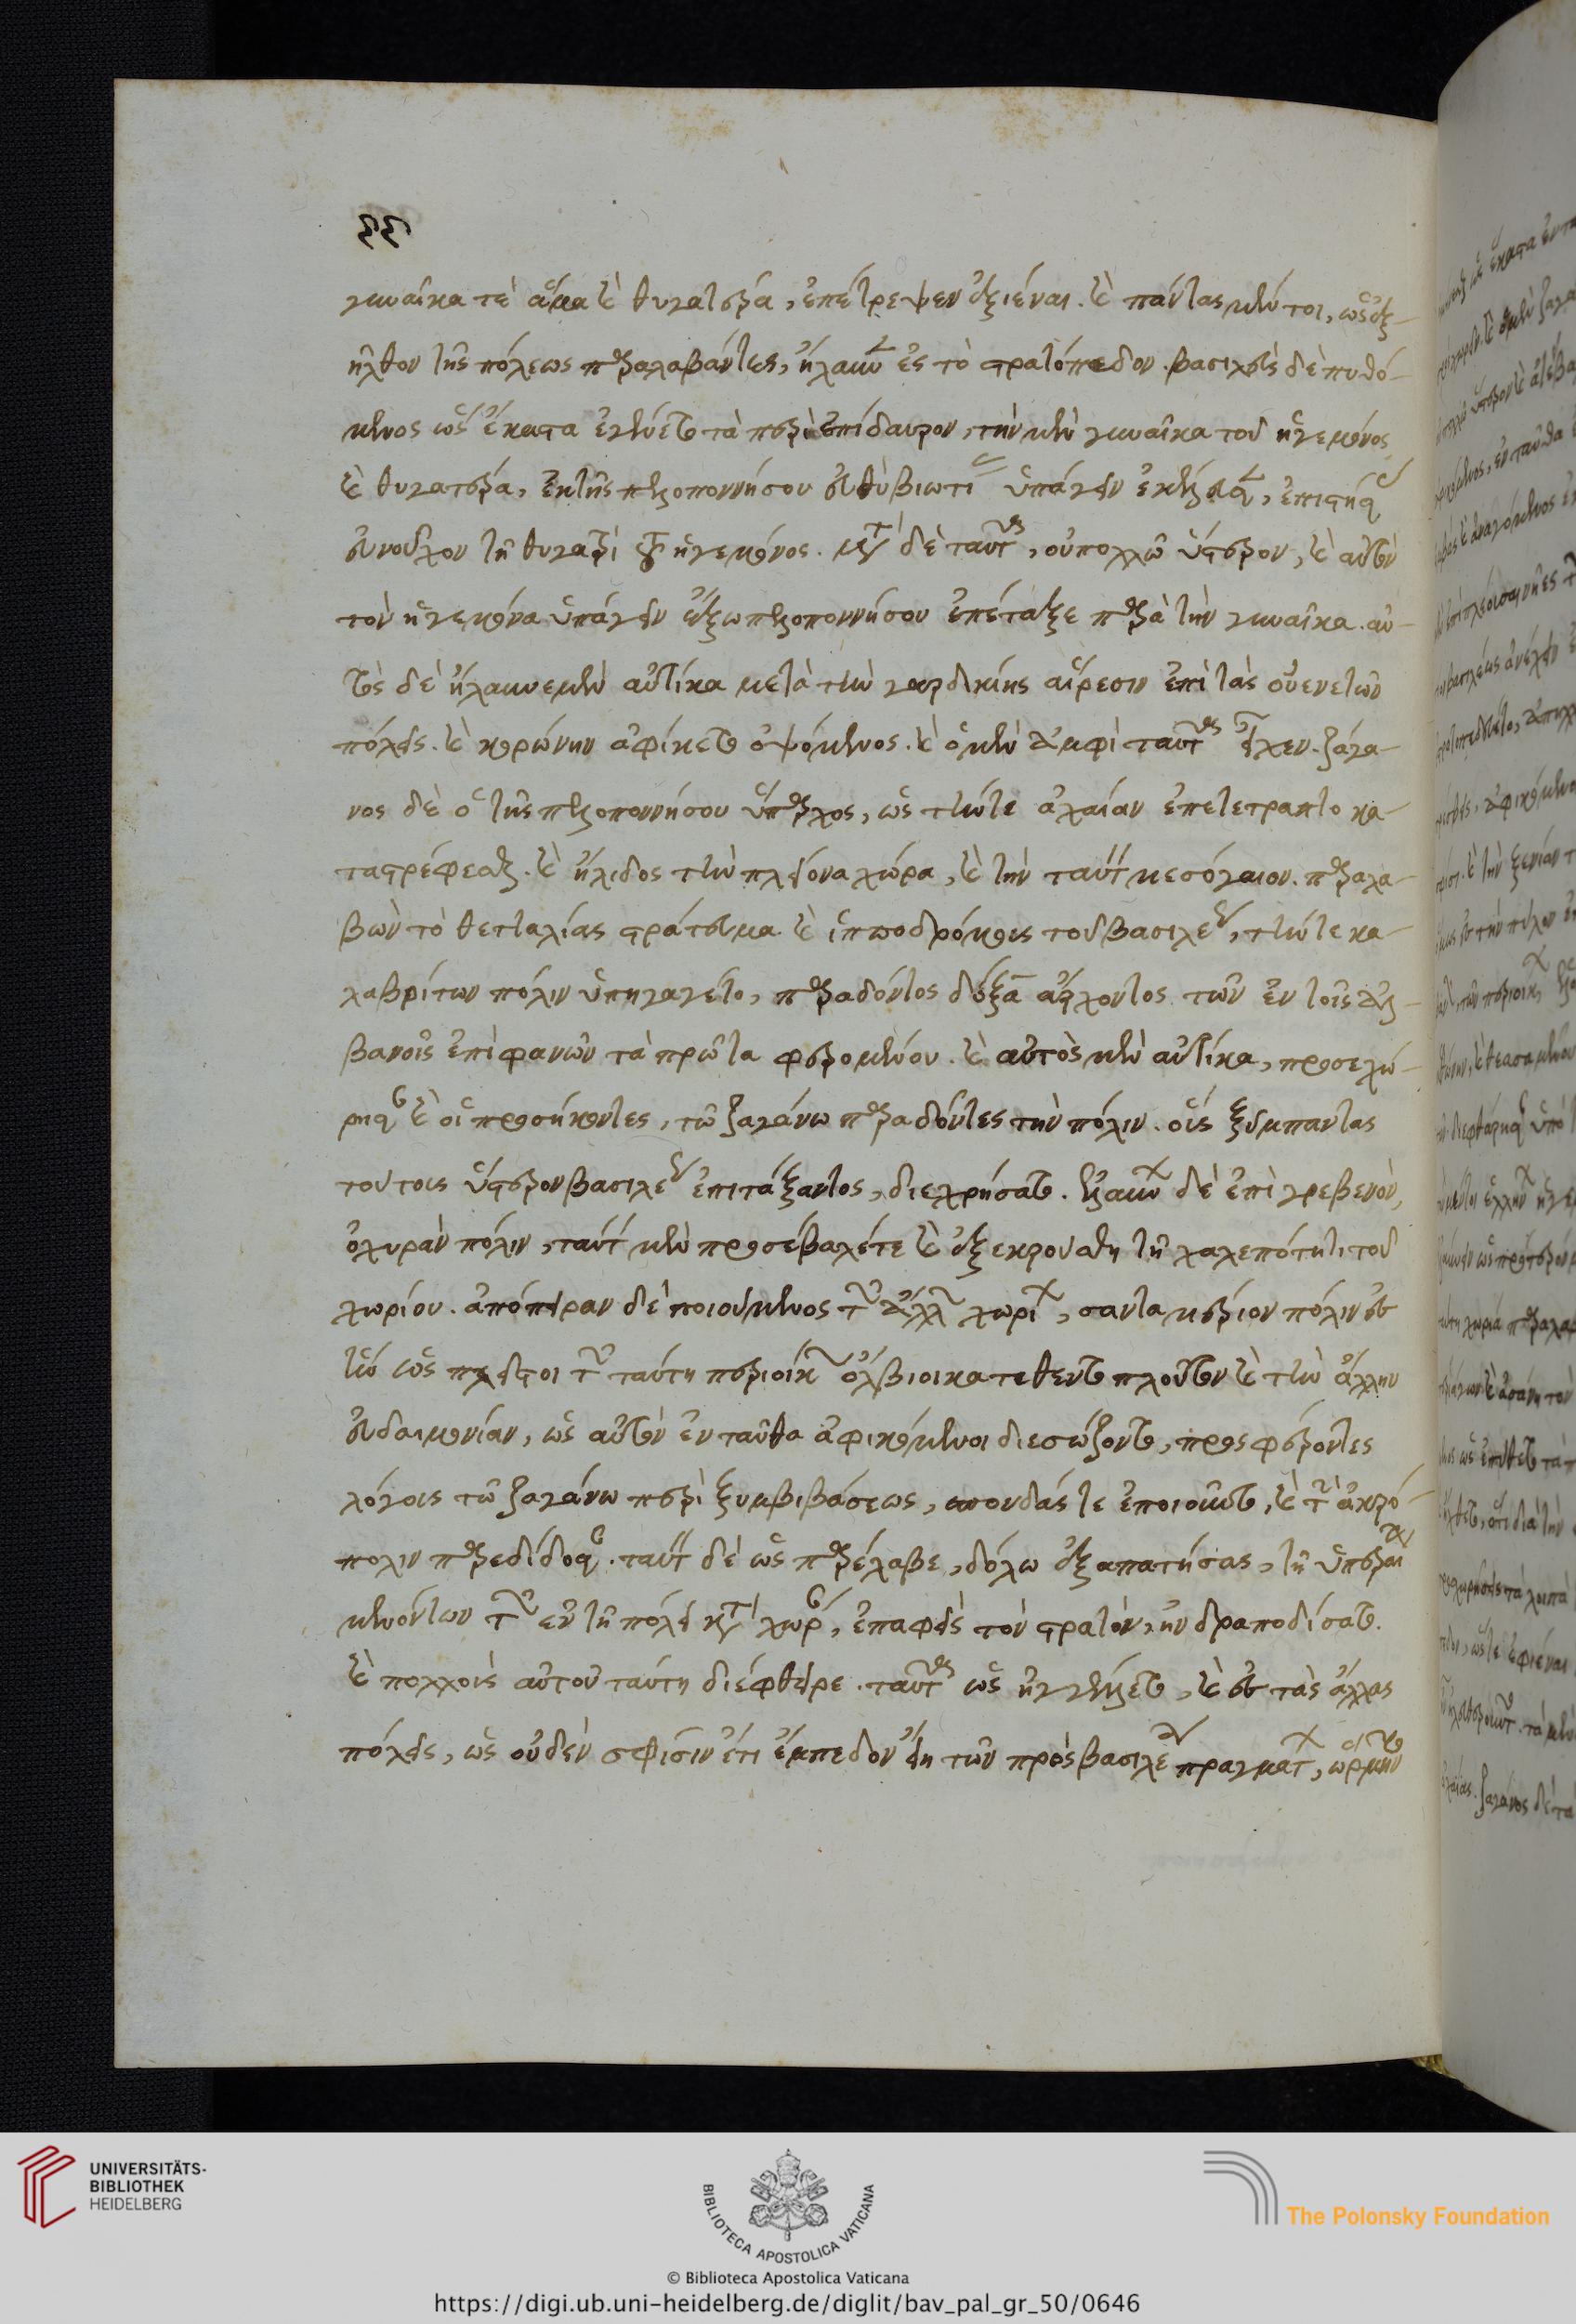 γυναῖκα τὲ ἅμα καὶ θυγατέρα, ἐπέτρεψεν ἐξιέναι. καὶ πάντας μέν τοι, ὡς ἐξ-
ῆλθον τῆς πόλεως παραλαβόντες, ἤλαυνον ἐς τὸ στρατόπεδον. βασιλεὺς δὲ πυθό-
μενος ὡς ἕκαστα ἐγένετο τὰ περὶ ἐπίδαυρον, τὴν μὲν γυναῖκα τοῦ ἡγεμόνος
καὶ θυγατέρα, ἐκ τῆς πελοποννήσου εὐθὺ βιωτί ὑπάγειν ἐκέλευσεν, ἐπιστήσας
εὐνοῦχον τῇ θυγατρὶ τοῦ ἡγεμόνος. μετὰ δὲ ταῦτα, οὐ πολλῶ ὕστερον, καὶ αὐτὸν
τὸν ἡγεμόνα ὑπάγειν ἔξω πελοποννήσου ἐπέταξε παρὰ τὴν γυναῖκα. αὐ-
τὸς δὲ ἤλαυνε μὲν αὐτίκα μετὰ τὴν γαρδικίης αἵρεσιν ἐπὶ τὰς οὐενετῶν
πόλεις. καὶ κορώνην ἀφίκετο ὀψόμενος. καὶ ὁ μὲν ἀμφὶ ταῦτα εἶχεν. ζάγα-
νος δὲ ὁ τῆς πελοποννήσου ὕπαρχος, ὡς τήν τε ἀχαΐαν ἐπετέτραπτο κα-
ταστρέφεσθαι. καὶ ἤλιδος τὴν πλείονα χώρα, καὶ τὴν ταύτῃ μεσόγαιον. παραλα-
βὼν τὸ θετταλίας στράτευμα καὶ ἱπποδρόμους τοῦ βασιλέως, τήν τε κα-
λαβρίτων πόλιν ὑπηγάγετο, παραδόντος δόξα ἄρχοντος τῶν ἐν τοῖς ἀλ-
βανοῖς ἐπιφανῶν τὰ πρῶτα φερομένου. καὶ αὐτὸς μὲν αὐτίκα, προσεχώ-
ρησε καὶ οἱ προσήκοντες, τῶ ζαγάνω παραδόντες τὴν πόλιν. οἷς ξύμπαντας
τούτους ὕστερον βασιλέως ἐπιτάξαντος, διεχρήσατο. ἐλαύνων δὲ ἐπὶ γρεβενὸν,
ὀχυρὰν πόλιν, ταύτῃ μὲν προσέβαλέ τε καὶ ἐξεκρούσθη τῇ χαλεπότητι τοῦ
χωρίου. ἀπόπειραν δὲ ποιούμενος τῶν ἄλλων χωρίων, σανταμέριον πόλιν ἐς
ἣν ὡς πλεῖστοι τῶν ταύτῃ περιοίκων ὄλβιοι κατέθεντο πλοῦτον καὶ τὴν ἄλλην
εὐδαιμονίαν, ὡς αὐτὸν ἐνταῦθα ἀφικόμενοι διεσώζοντο, προσφέροντες
λόγους τῶ ζαγάνω περὶ ξυμβιβάσεως, σπονδάς τε ἐποιοῦντο, καὶ τὴν ἀκρό-
πολιν παρεδίδοσαν. ταύτην δὲ ὡς παρέλαβε, δόλω ἐξαπατήσας, τῇ ὑστεραίᾳ
μενόντων τῶν ἐν τῇ πόλει κατὰ χώραν, ἐπαφεὶς τὸν στρατὸν, ἠνδραποδίσατο.
καὶ πολλοὺς αὐτοῦ ταύτῃ διέφθειρε. ταῦτα ὡς ἠγγέλλετο, καὶ ἐς τὰς ἄλλας
πόλεις, ὡς οὐδὲν σφίσιν ἔτι ἔμπεδον εἴη τῶν πρὸς βασιλέως πραγμάτων, ὥρμην
UNIVERSITÄTS-
BIBLIOTHEK
HEIDELBERG
BIBLIOTECA APOSTOLICA VATICANA
© Biblioteca Apostolica Vaticana
The Polonsky Foundation
https://digi.ub.uni-heidelberg.de/diglit/bav_pal_gr_50/0646